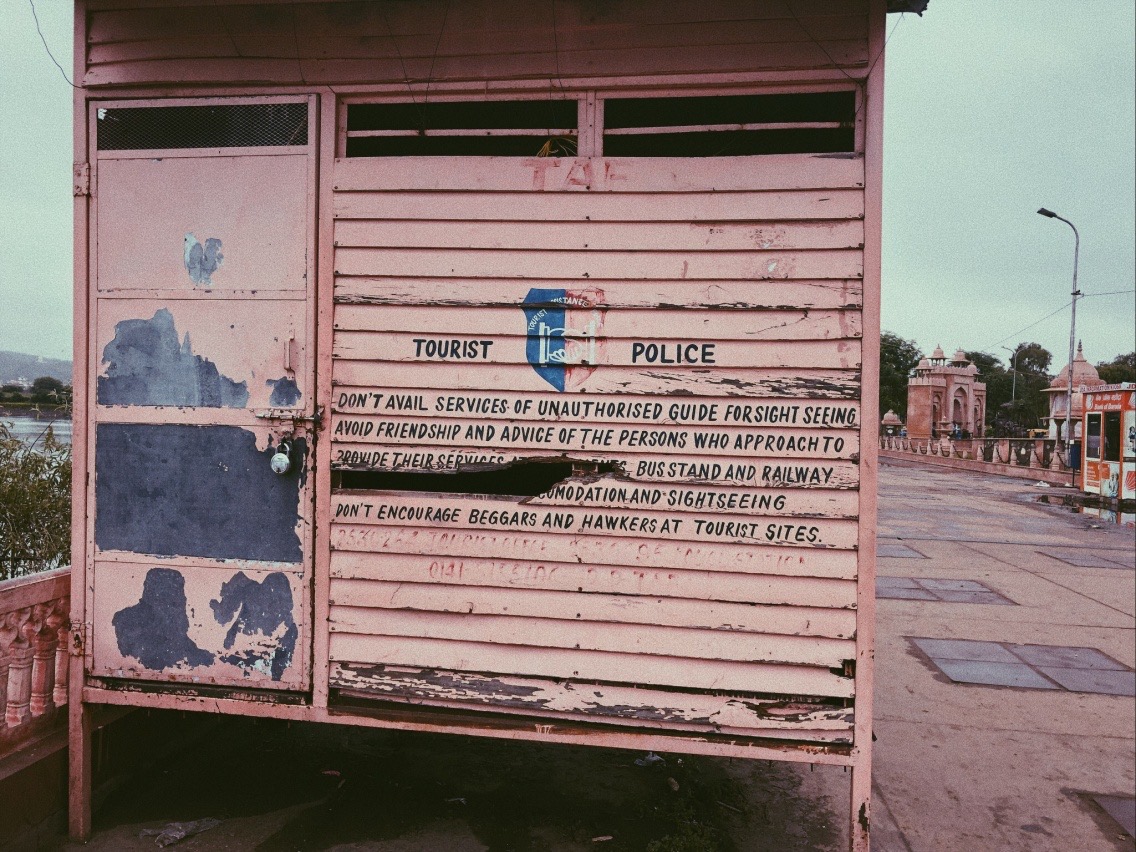 TAF
TOURIST
TOURIST POLICE
DON'T AVAIL SERVICES OF UNAUTHORISED GUIDE FOR SIGHT SEEING
AVOID FRIENDSHIP AND ADVICE OF THE PERSONS WHO APPROACH TO
PROVIDE THEIR SERVICES BUS STAND AND RAILWAY
COMODATION AND SIGHTSEEING
DON'T ENCOURAGE BEGGARS AND HAWKERS AT TOURIST SITES.
0141